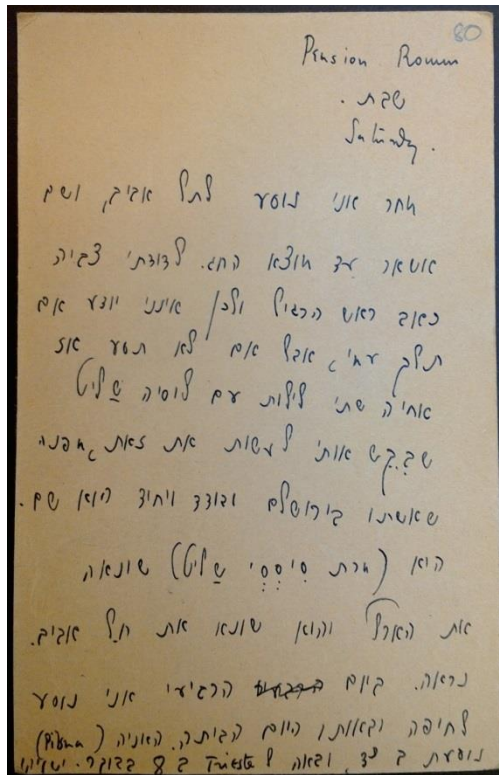 80
Pension Romm
שבת.
Saturday.
מחר אני נוסע לתל אביב, ושם
אשאר עד מוצא החג. לדודתי צביה
כאב ראש הרגיל ולכן אינני יודע אם
תלך עמי, אבל אם לא תסע אז
אחיה שתי לילות עם לוסיה שַליט
שבִקֵש אותי לעשות את זאת, מפנה
שאשתו בירושלם ובודד ויחיד הוא שם.
היא (מרת סִיסְסִי שַליט) שונאה
את הארץ והוא שונא את תל אביב.
נראה. ביום הרביעי אני נוסע
לחיפה ובאותו היום הביתה. האניה
נוסעת ב 3, ובאה ל Trieste ב 8 בבוקר.